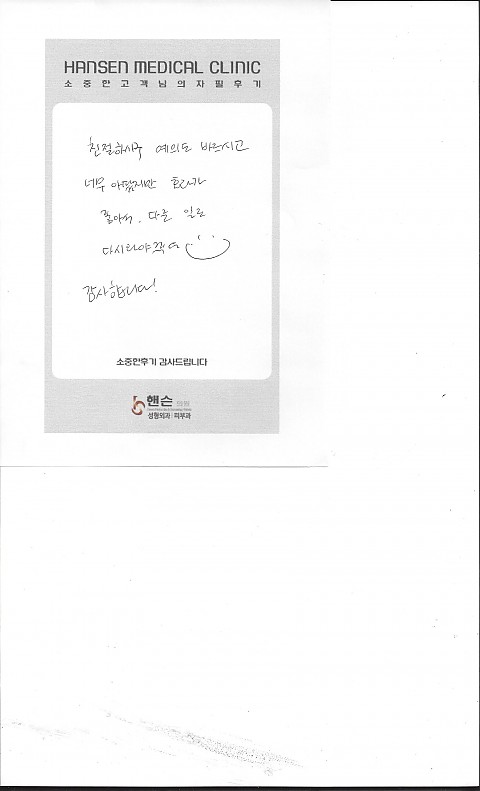 HANSEN MEDICAL CLINIC
소중한고객님의자필후기
친절하시구 예의도 바르시고
너무 아팠지만 효과가
좋아서. 다른 일로
다시와야겠어
감사합니다!
소중한후기 감사드립니다
핸슨 의원
성형외과 피부과